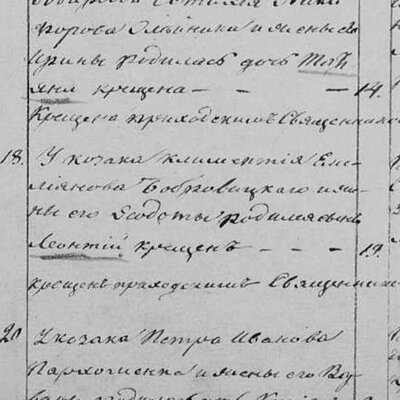 форова Олѣйника и жены его
Ирины родилась дочь Таті
яна крещена — — — 14.
Крещена приходскимъ Священник
18. У козака Климентія Еме
ліянова Бобровицкаго и же
ны его Ѳеодоты родился сынъ
Леонтій крещенъ — — — 19.
крещенъ приходскимъ Священник
20 У козака Петра Иванова
Пархоменка и жены его Вар